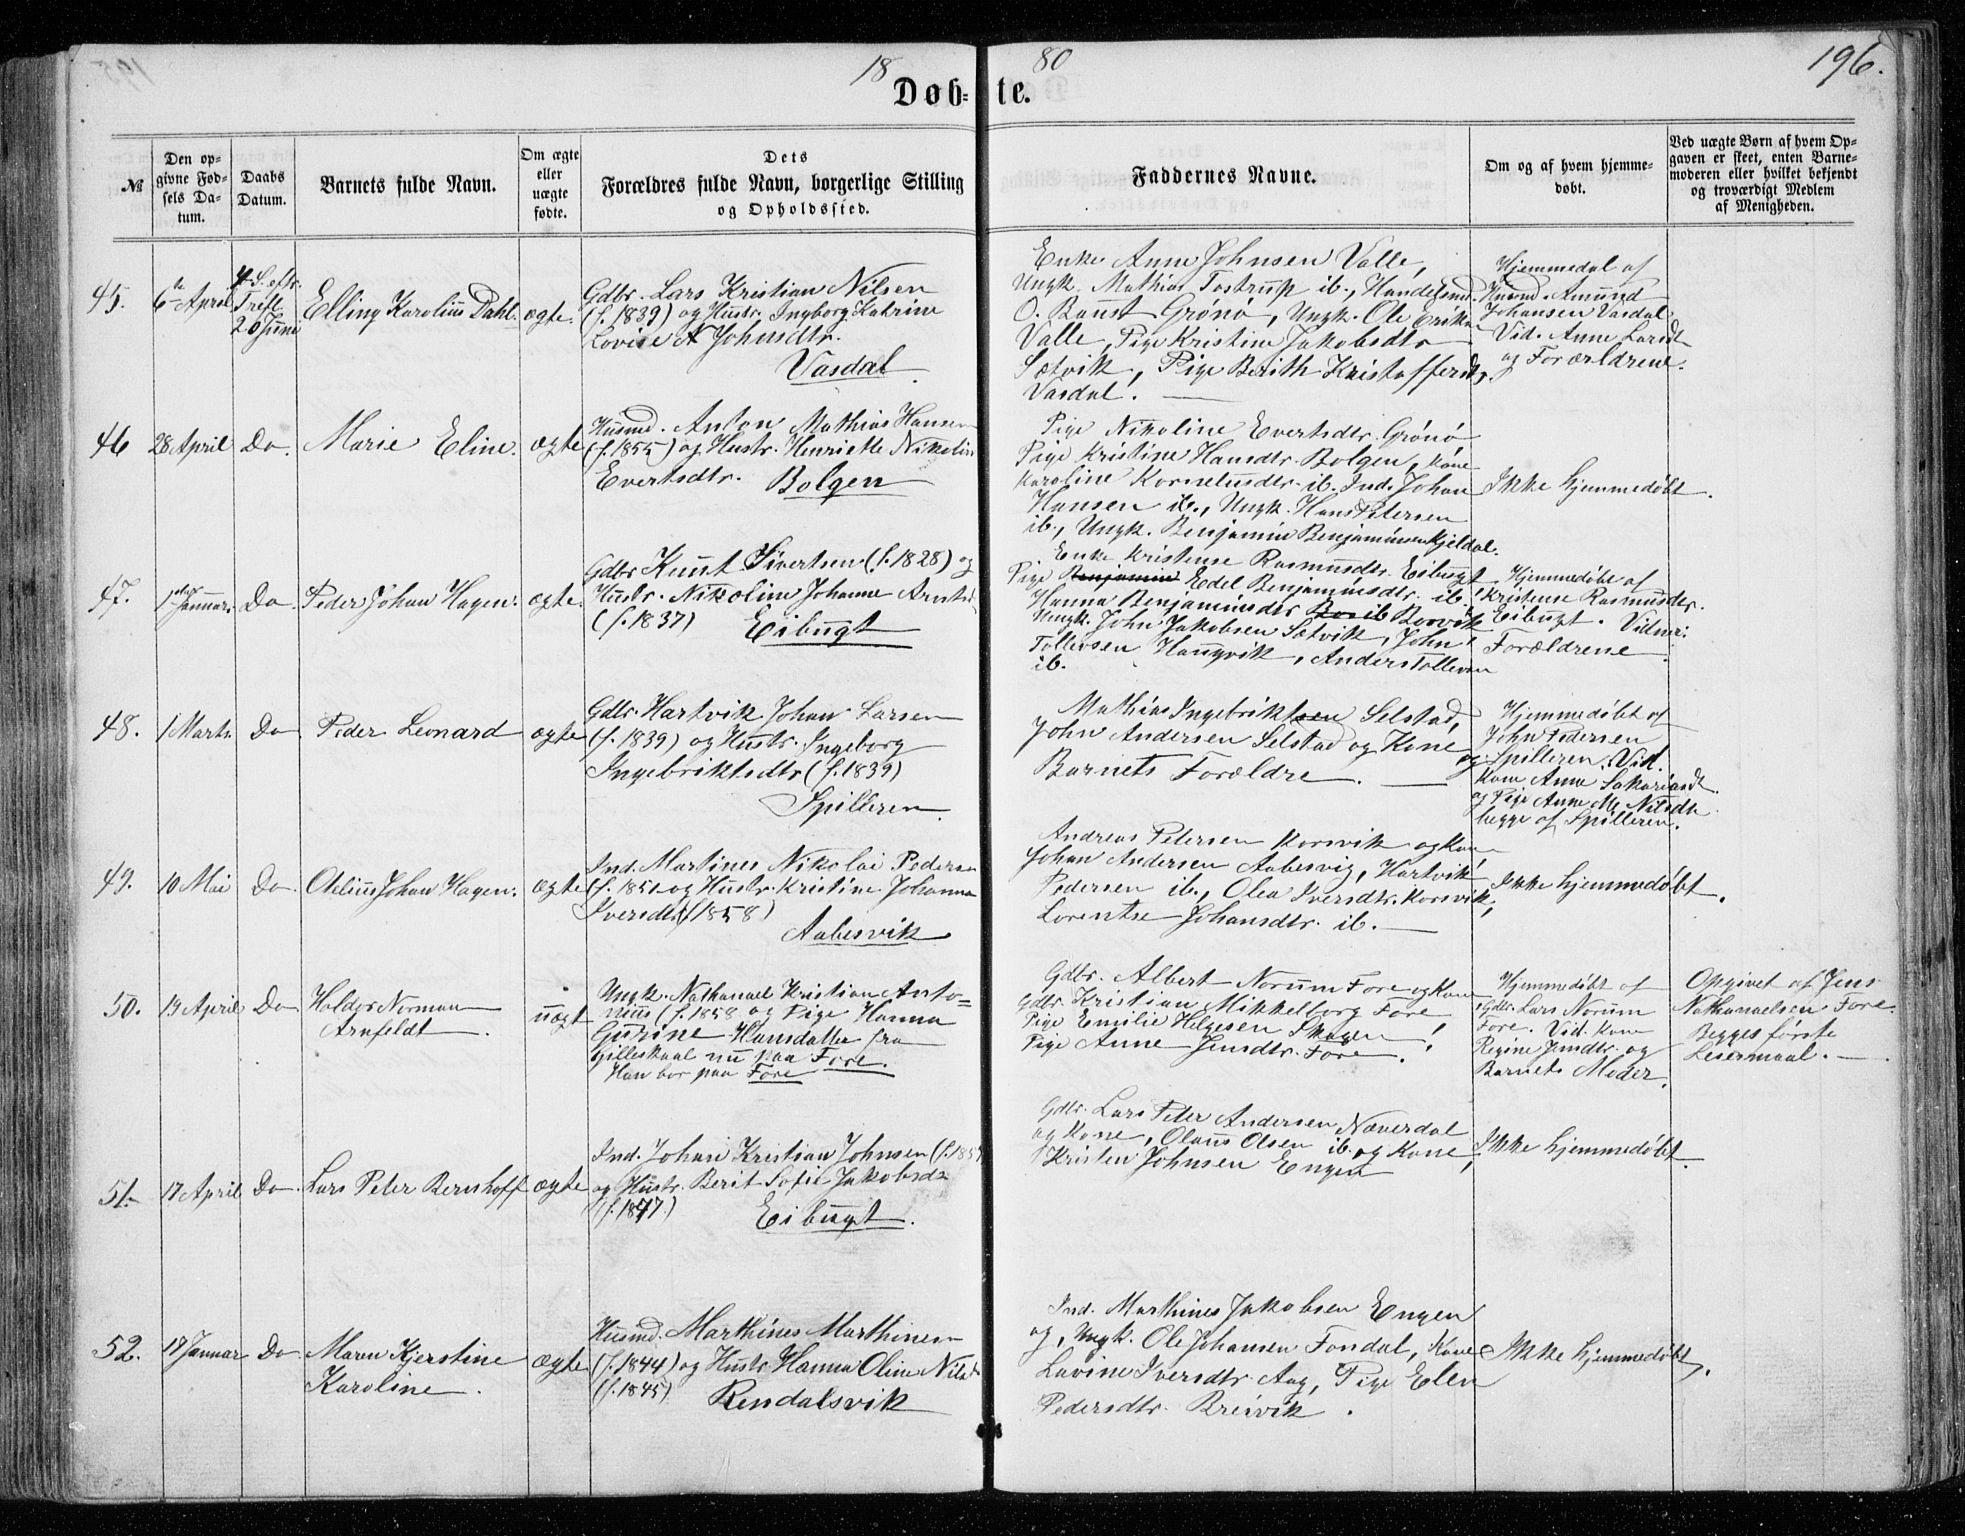 18 80
196.
Døb-te.
№
Den op-
givne Fød-
sels Da-
tum.
Daabs
Datum.
Barnets fulde Navn.
Om ægte
eller
uægte
fødte.
Dets
Forældres fulde Navn, borgerlige Stilling
og Opholdssted.
Faddernes Navne.
Om og af hvem hjemme-
døbt.
Ved uægte Børn af hvem Op-
gaven er skeet, enten Barne-
moderen eller hvilket bekjendt
og troværdigt Medlem
af Menigheden.
45.
6te April
4 S. eftr.
Trefl.
20 Juni
Elling Karolius Dahl.
ægte.
Gdbr. Lars Kristian Nilsen
(f. 1839) og Hustr. Ingborg Katrine
Lovise A Johnsdtr.
Vasdal
Enke Anne Johnsen Valle,
Ungk. Mathias Tostrup ib., Handelsmd.
O. Baust Grønø, Ungk. Ole Eriks
Valle, Pige Kristine Jakobsdtr
Sætvik, Pige Berith Kristoffersdtr.
Vasdal.
Hjemmedøl af
Husmd. Amund
Johansen Vasdal
Vid. Anne Larsdt
og Forældrene.
46
28 April
Do.
Marie Eline.
ægte
Husmd. Anton Mathias Hansen
(f. 1855) og Hustr. Henriette Nikolin
Evertsdtr. Bolgen
Pige Nikoline Evertsdtr. Grønø,
Pige Kristine Hansdtr. Bolgen, Kone
Karoline Kornelusdtr. ib. Ind. Johan
Hansen ib., Ungk. Hans Petersen
ib., Ungk. Benjamin Benjaminsen Kjeldal.
Ikke hjemmedøbt.
47.
1ste Januar.
Do
Peder Johan Hagen.
ægte.
Gdbr Knut Sivertsen (f. 1828) og
Hustr. Nikoline Johanna Arntsd
(f. 1837) Eibugt
Enke Kristense Rasmusdtr. Eibugt
Pige Benjamin Edel Benjaminsdtr. ib.,
Hanna Benjaminsdtr Bo ib Borvik
Ungk. John Jakobsen Sætvik, John
Tollevsen Haugvik, Anders Tollevsen
ib.
Hjemmedøbt af
Kristense Rasmusdtr.
Eibugt. Vidner:
Forældrene
48.
1 Marts.
Do
Peder Leonard
ægte
Gdbr. Hartvik Johan Larsen
(f. 1839) og Hustr. Ingeborg
Ingebriktsdtr (f. 1839)
Spilderen.
Mathias Ingebriktsen Selstad,
John Andersen Selstad og Kone
og
Barnets Forældre.
Hjemmedøbt af
John Pedersen
Spilderen. Vid.
Kone Anne Sakariasdt
og Pige Anne M. Nilsdtr
begge af Spilderen.
49.
10 Mai
Do.
Otelius Johan Hagen.
ægte
Ind. Martines Nikolai Pedersen
(f. 1851 og Hustr. Kristine Johanna
Iversdtr. (1858)
Aabesvik
Andreas Petersen Korsvik og Kone,
Johan Andersen Aabesvig, Hartvik
Pedersen ib., Olea Iversdtr. Korsvik,
Lorentse Johansdtr. ib.
Ikke hjemmedøbt.
50.
19 April
Do
Holder Norman
Arnfeldt.
uægt
Ungk. Nathanael Kristian Anto-
nius (f. 1858 og Pige Hanna
Gurine Hansdatter fra
Gilleskaal nu paa Fore.
Han bor paa Fore
Gdbr. Albert Norum Fore og Kone
Gdbr. Kristian Mikkelborg Fore
Pige Emilie Helgesen Skagen,
Pige Anne Jensdtr. Fore.
Hjemmedøbt af
Gdbr. Lars Norum
Fore. Vid. Kone
Regine Jensdtr. og
Barnets Moder.
Opgivet af Jens
Nathanaelsen Fore.
Begges første
Leiermaal.
51.
17 April
Do
Lars Peter Bernhoff
ægte
Ind. Johan Kristian Johnsen (f. 185
og Hustr. Berit Sofie Jakobsdr
(f. 1847)
Eibugt.
Gdbr. Lars Peter Andersen Næverdal
og Kone, Olaus Olsen ib. og Kone,
Kristen Johnsen Engen
Ikke hjemmedøbt.
52.
17 Januar
Do
Maren Kjerstine
Karoline.
ægte
Husmd. Marthines Marthinsen
(f. 1844) og Hustr Hanna Oline Nilsd
(f. 1845)
Rendalsvik
Ind. Marthines Jakobsen Engen
og, Ungk. Ole Johansen Fondal, Kone
Lavine Iversdtr. Aag, Pige Elen
Pedersdtr. Breivik.
Ikke hjemmedøbt.